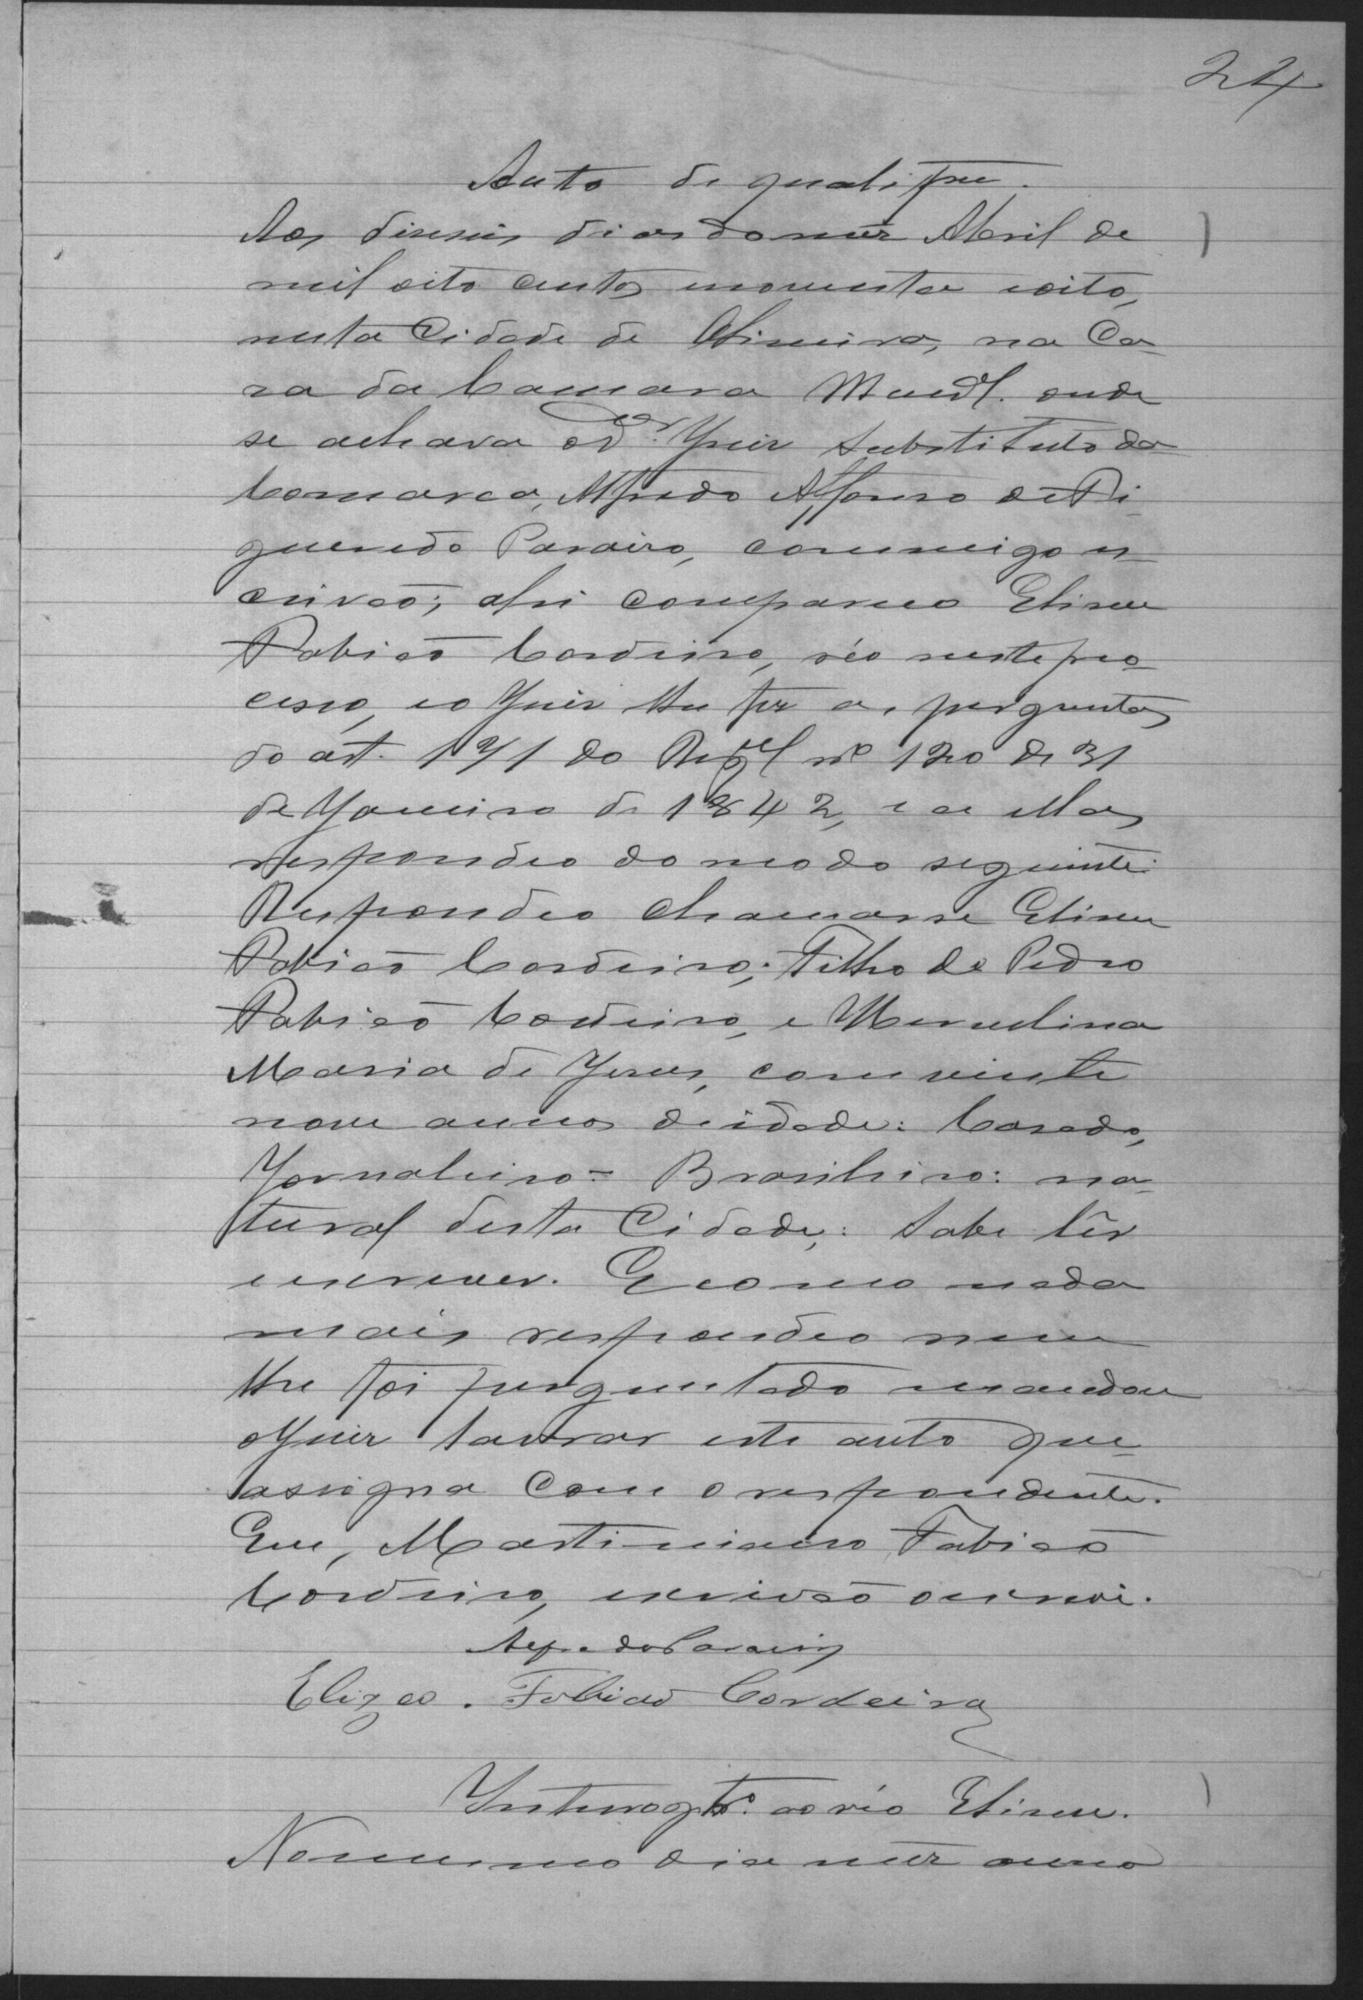 24
Auto de qualifçm.
Aos deseseis dias do mez Abril de
mil oito centos noventa e oito,
nesta Cidade de Limeira, na Ca-
sa da Camara Munal. onde
se achava o Dr. Juiz Substituto da
Comarca, Alfredo Affonso de Fi-
gueredo Paraiso, commigo es-
crivão; ahi compareceo Eliseu
Fabião Cordeiro, réo neste pro-
cesso, e o Juiz lhe fez as perguntas
do art. 171 do Regul nº 120 de 31
de Janeiro de 1842, e a ellas
respondeo do modo seguinte:
Respondeo chamar-se Eliseu
Fabião Cordeiro; Filho de Pedro
Fabião Cordeiro, e
Maria de Jesus, com vinte
nove annos de idade: Casado,
Jornaleiro = Brasileiro: na-
tural desta Cidade,: sabe lêr
e escrever. E como nada
mais respondeo nem
lhe foi perguntado mandou
o Juiz lavrar este auto que
assigna com o respondente.
Eu, Martiniano Fabião
Cordeiro, escrivão o escrevi.
Alfredo Paraiso
Elizeo . Fabiao Cordeiro
Interogto. ao réo Eliseu.
No mesmo dia mez anno